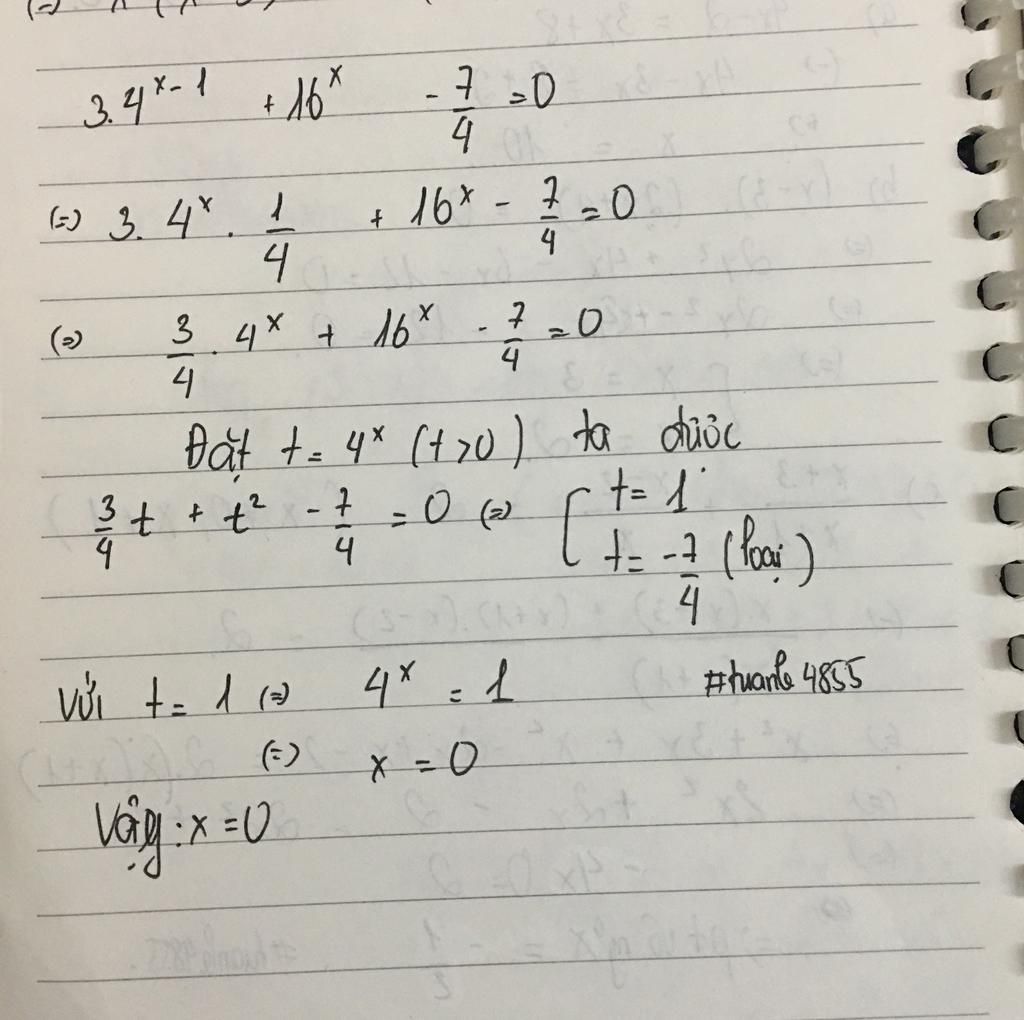 3.4^{x-1} + 16^x - 7/4 = 0
(=) 3. 4^x . 1/4 + 16^x - 7/4 = 0
(=) 3/4 . 4^x + 16^x - 7/4 = 0
Đặt t = 4^x (t>0) ta được
3/4 t + t^2 - 7/4 = 0 (=) [ t = 1
t = -7/4 (loại)
Với t = 1 (=) 4^x = 1 #tuanle4855
(=) x = 0
Vậy : x = 0